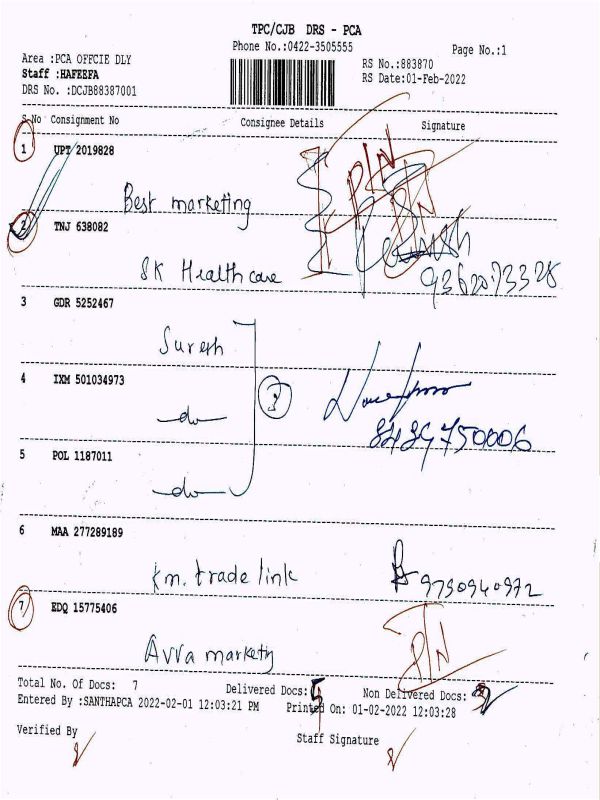 TPC/CJB DRS - PCA
Phone No.:0422-3505555
Page No.:1
Area :PCA OFFCIE DLY
RS No.:883870
Staff :HAFEEFA
RS Date:01-Feb-2022
DRS No. :DCJB88387001
S.No Consignment No Consignee Details Signature
1 UPT 2019828
Best marketing
P/N
2 TNJ 638082
SK Health care
9362073328
3 GDR 5252467
Suresh
4 IXM 501034973
3
-do-
5 POL 1187011
-do-
6 MAA 277289189
km. trade link
9790940972
7 EDQ 15775406
P/N
Avva marketing
Total No. Of Docs: 7 Delivered Docs: 5 Non Delivered Docs: 2
Entered By :SANTHAPCA 2022-02-01 12:03:21 PM Printed On: 01-02-2022 12:03:28
Verified By
Staff Signature